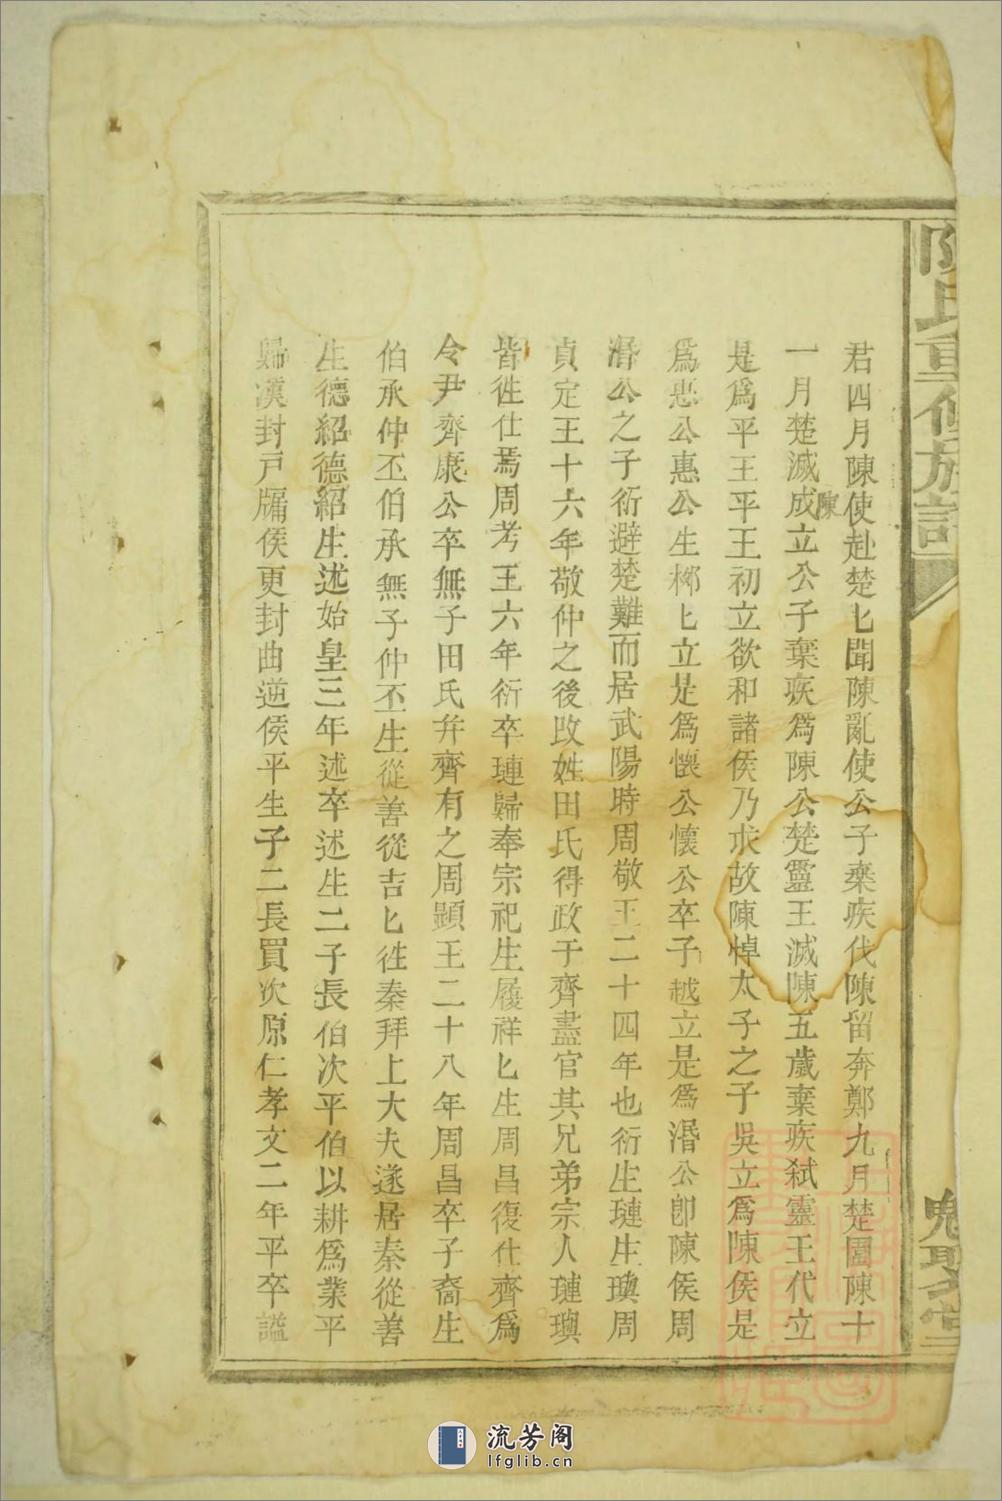 陳氏重修族譜
君四月陳使赴楚匕聞陳亂使公子棄疾代陳留奔鄭九月楚圍陳十
一月楚滅陳成立公子棄疾爲陳公楚靈王滅陳五歲棄疾弑靈王代立
是爲平王平王初立欲和諸侯乃求故陳悼太子之子吳立爲陳侯是
爲惠公惠公生栁匕立是爲懷公懷公卒子越立是爲湣公卽陳侯周
湣公之子衍避楚難而居武陽時周敬王二十四年也衍生璉生璵周
貞定王十六年敬仲之後改姓田氏得政于齊盡官其兄弟宗人璉璵
皆徃仕焉周考王六年衍卒璉歸奉宗祀生履祥匕生周昌復仕齊爲
令尹齊康公卒無子田氏并齊有之周顯王二十八年周昌卒子裔生
伯承仲丕伯承無子仲丕生從善從吉匕徃秦拜上大夫遂居秦從善
生德紹德紹生述始皇三年述卒述生二子長伯次平伯以耕爲業平
歸漢封戸牖侯更封曲逆侯平生子二長買次原仁孝文二年平卒謚
流芳阁
lfglib.cn